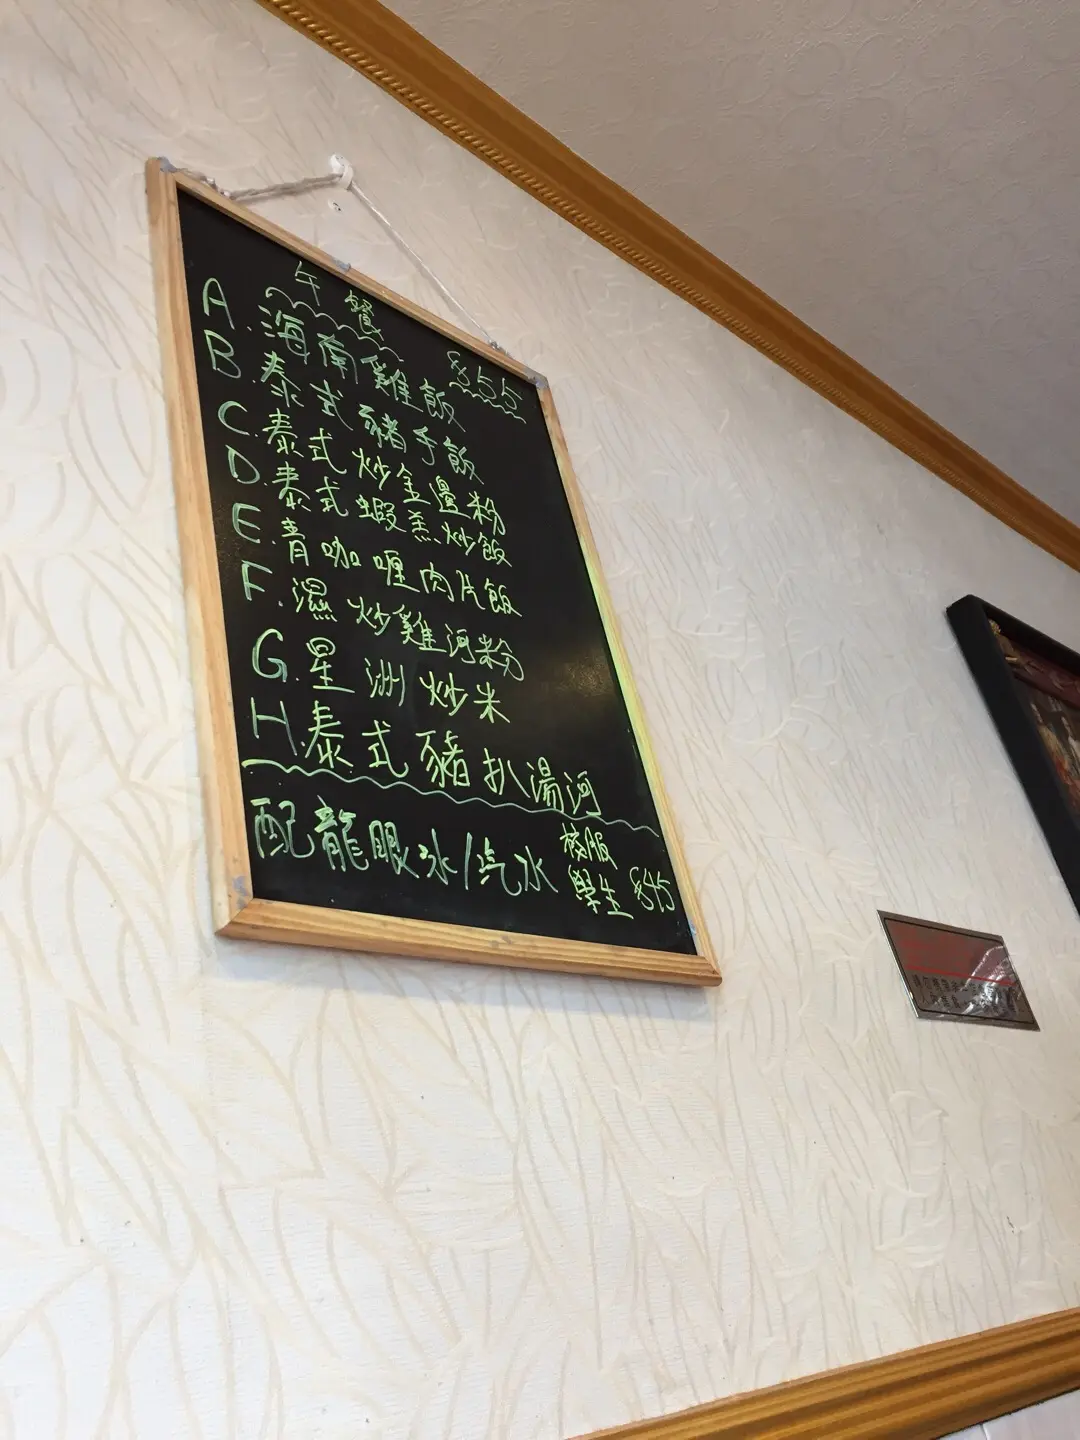 午餐 $55
A. 海南雞飯
B. 泰式豬手飯
C. 泰式炒金邊粉
D. 泰式蝦羔炒飯
E. 青咖喱肉片飯
F. 濕炒雞河粉
G. 星洲炒米
H. 泰式豬扒湯河
配龍眼冰/汽水 校服
學生 $45